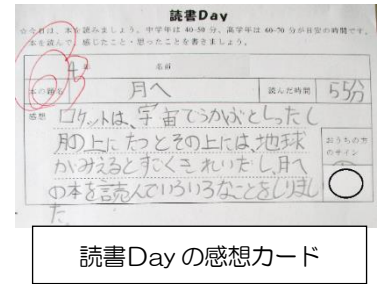 読書Day
☆今日は、本を読みましょう。中学年は 40-50 分、高学年は 60-70 分が目安の時間です。
本を読んで、感じたこと・思ったことを書きましょう。
4 年
名前
本の題名
月へ
読んだ時間
55分
感想
ロケットは、宇宙でうかぶとしったし
月の上にたつとその上には、地球
がみえるとすごくきれいだし、月へ
の本を読んでいろいろなことをしりまし
た。
おうちの方
のサイン
読書Dayの感想カード